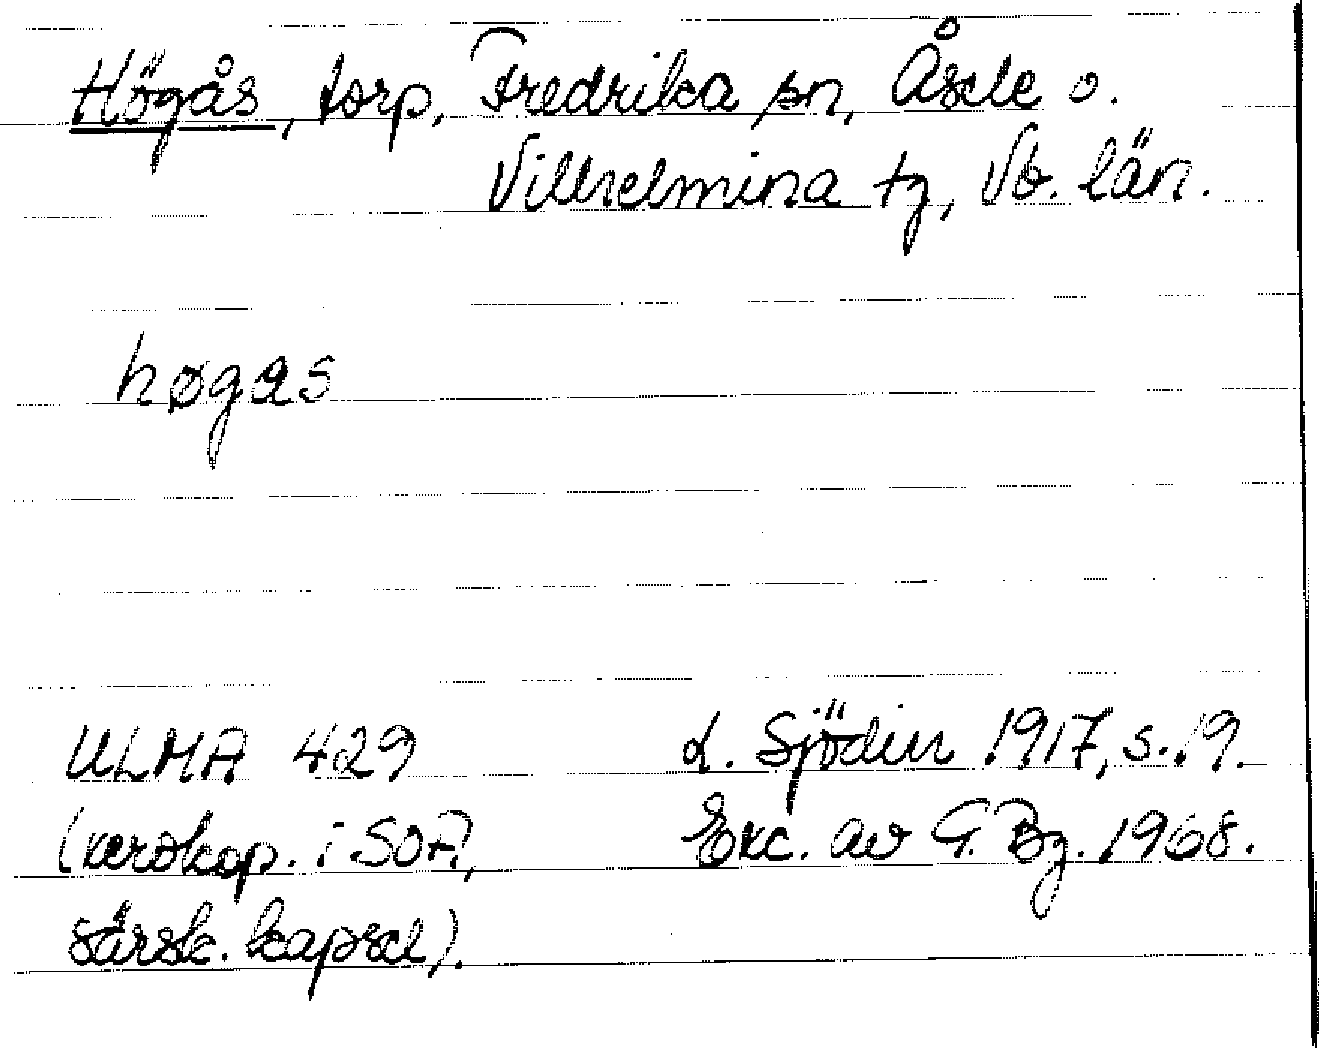 Högås, torp, Fredrika sn, Åsele o.
Vilhelmina tg, Vb. län.
høgas
ULMA 429
L. Sjödin 1917, s. 19.
(xeroxkop. i SOFI,
Exc. av G. Bg. 1968.
särsk. kapsel).